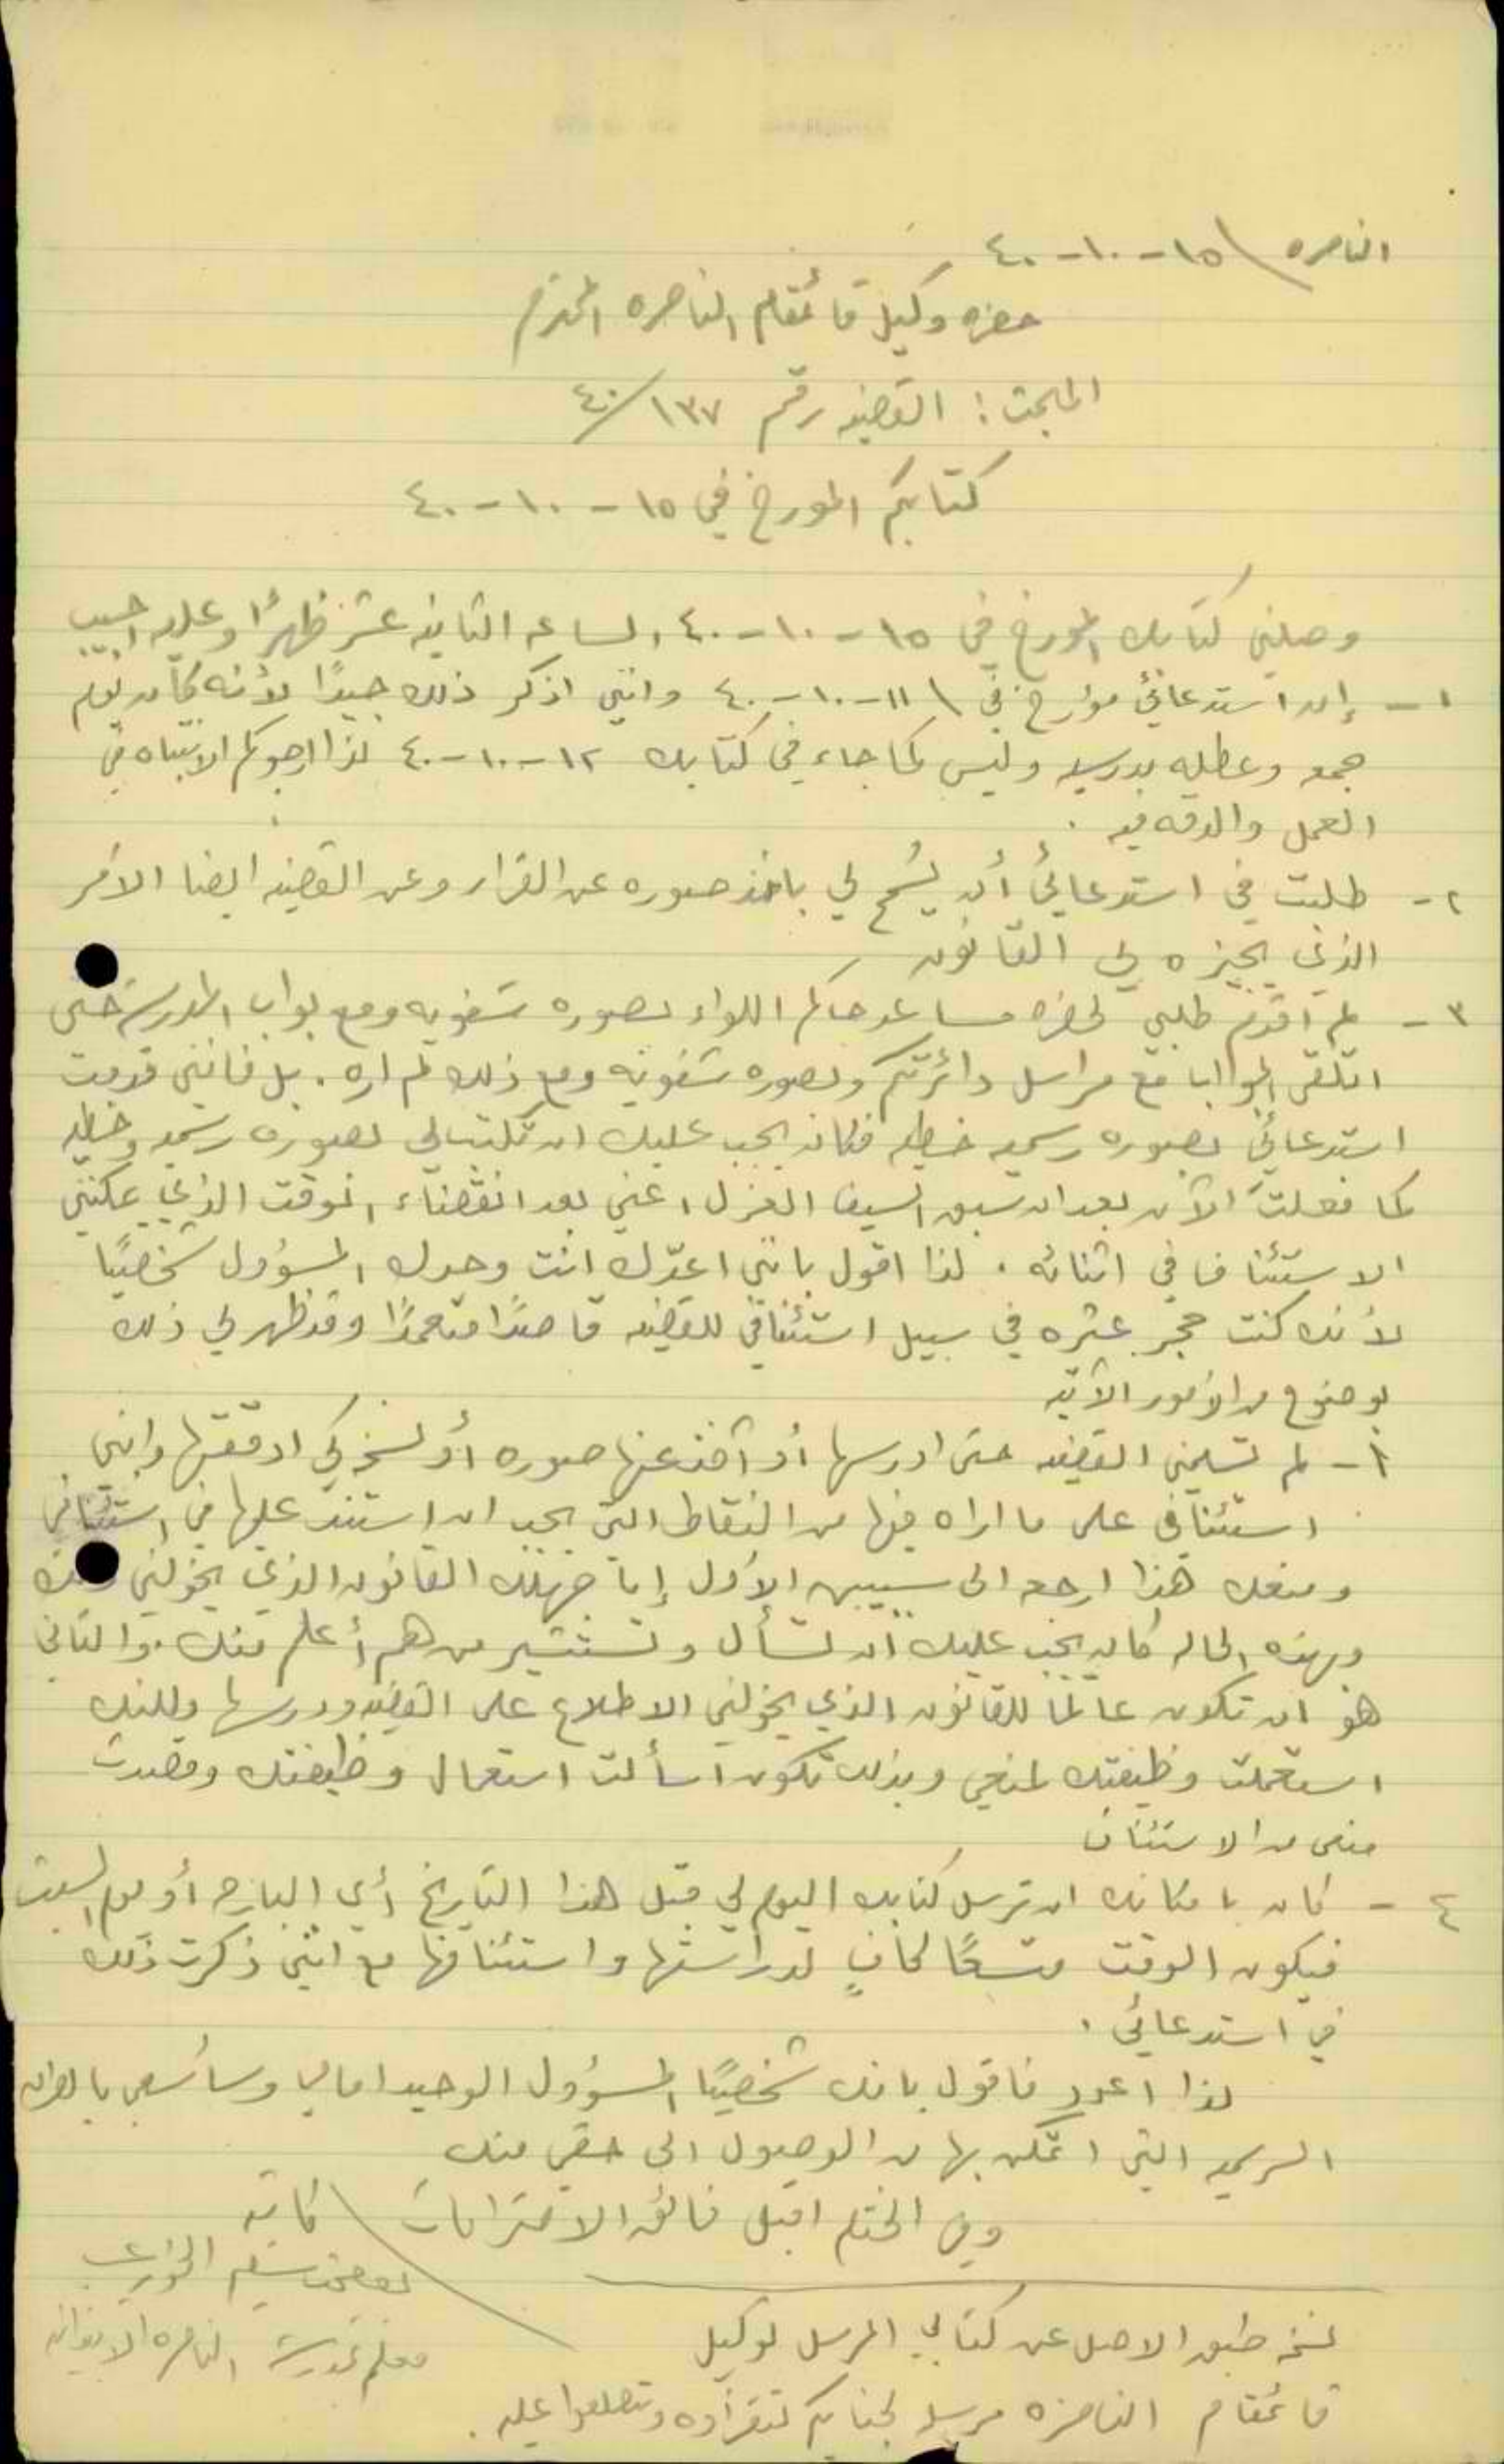 الناصره \ ١٥-١٠-٤٠
حضره وكيل قائمقام الناصره المحترم
المبحث : القضيه رقم ١٣٧/٤٠
كتابكم المورخ في ١٥-١٠-٤٠
وصلني كتابك المورخ في ١٥-١٠-٤٠ الساعه الثانيه عشر ظهرًا وعليه اجيب
١- إن استدعائي مؤرخ في \ ١١-١٠-٤٠ وانني اذكر ذلك جيدًا لأنه كان يوم
جمعه وعطله مدرسيه وليس كما جاء في كتابك ١٢-١٠-٤٠ لذا ارجوكم الانتباه في
العمل والدقه فيه .
٢- طلبت في استدعائي أن يُسمح لي باخذ صوره عن القرار وعن القضيه ايضا الامر
الذي يجيزه لي القانون
٣- لم اقدم طلبي لحضره مساعد حاكم اللواء بصوره شفويه ومع بواب المدرسه حتى
اتلقى الجوابا مع مراسل دائرتكم وبصوره شفويه ومع ذلك لم اره . بل فانني قدمت
استدعائي بصوره رسميه خطيه فكان يجب عليك ان تكتب لي بصوره رسميه وخطيه
كما فعلت الآن بعد ان سبق السيف العزل اعني بعد انقضاء الوقت الذي يمكنني
الاستئناف في اثنائه . لذا اقول بانني اعدّك انت وحدك المسؤول شخصيًا
لأنك كنت حجر عثره في سبيل استئنافي للقضيه قاصدًا متعمدًا وقد ظهر لي ذلك
بوضوح من الامور الآتيه
١- لم تسلمني القضيه حتى ادرسها أو آخذ عنها صوره أو نسخه كي ادققها وابني
استئنافي على ما اراه فيها من النقاط التي يجب ان استند عليها في استئنافي
ومنعك هذا ارجعه الى سببين الاول إما جهلك القانون الذي يخولني
وبهذه الحاله كان يجب عليك ان تسأل وتستشير من هم أعلم منك . والثاني
هو ان تكون عالمًا للقانون الذي يخولني الاطلاع على القضيه ودرسها ولكنك
استعملت وظيفتك لمنعي وبذلك تكون اسأت استعمال وظيفتك وقصدت
منعي من الاستئناف
٤- كان بامكانك ان ترسل كتابك اليوم لي قبل هذا التاريخ أي البارح أو يوم السبت
فيكون الوقت متسعًا كافٍ لدراستها واستئنافها مع انني ذكرت ذلك
في استدعائي .
لذا اعود فاقول بانك شخصيًا المسؤول الوحيد امامي وسأسعى بالطرق
الرسميه التي اتمكن بها من الوصول الى حقي منك
وفي الختام اقبل فائق الاحترامات \ كاتبه
سليم الخوري
معلم بمدرسة الناصره
نسخه طبق الاصل عن كتابي المرسل لوكيل
قائمقام الناصره مرسله لجنابكم لتقرأوه وتطلعوا عليه .